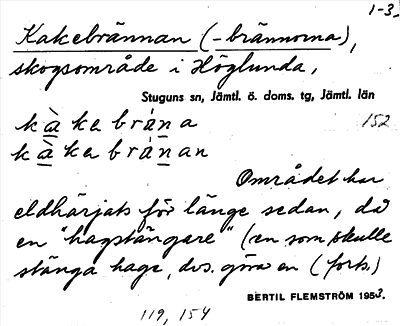 1-3.
Kakebrännan (-brännorna),
skogsområde i Höglunda,
Stuguns sn, Jämtl. ö. doms. tg, Jämtl. län
kàkebrána 152
kàkebránan
Området har
eldhärjats för länge sedan, då
en "hagstängare" (en som skulle
stänga hage, dvs. göra en (forts.)
BERTIL FLEMSTRÖM 1953.
119, 154